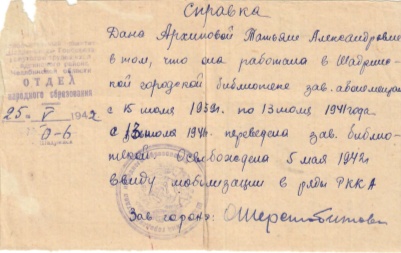 Справка
Дана Архиповой Татьяне Александровне
в том, что она работала в Шадрин-
ской городской библиотеке зав. абонементом
с 15 июля 1939г. по 13 июля 1941 года
с 13 июля 1941. переведена зав. библио-
текой Освобождена 5 мая 1942г
ввиду мобилизации в ряды РККА
Зав гороно:
ОТДЕЛ
народного образования
25. V 1942